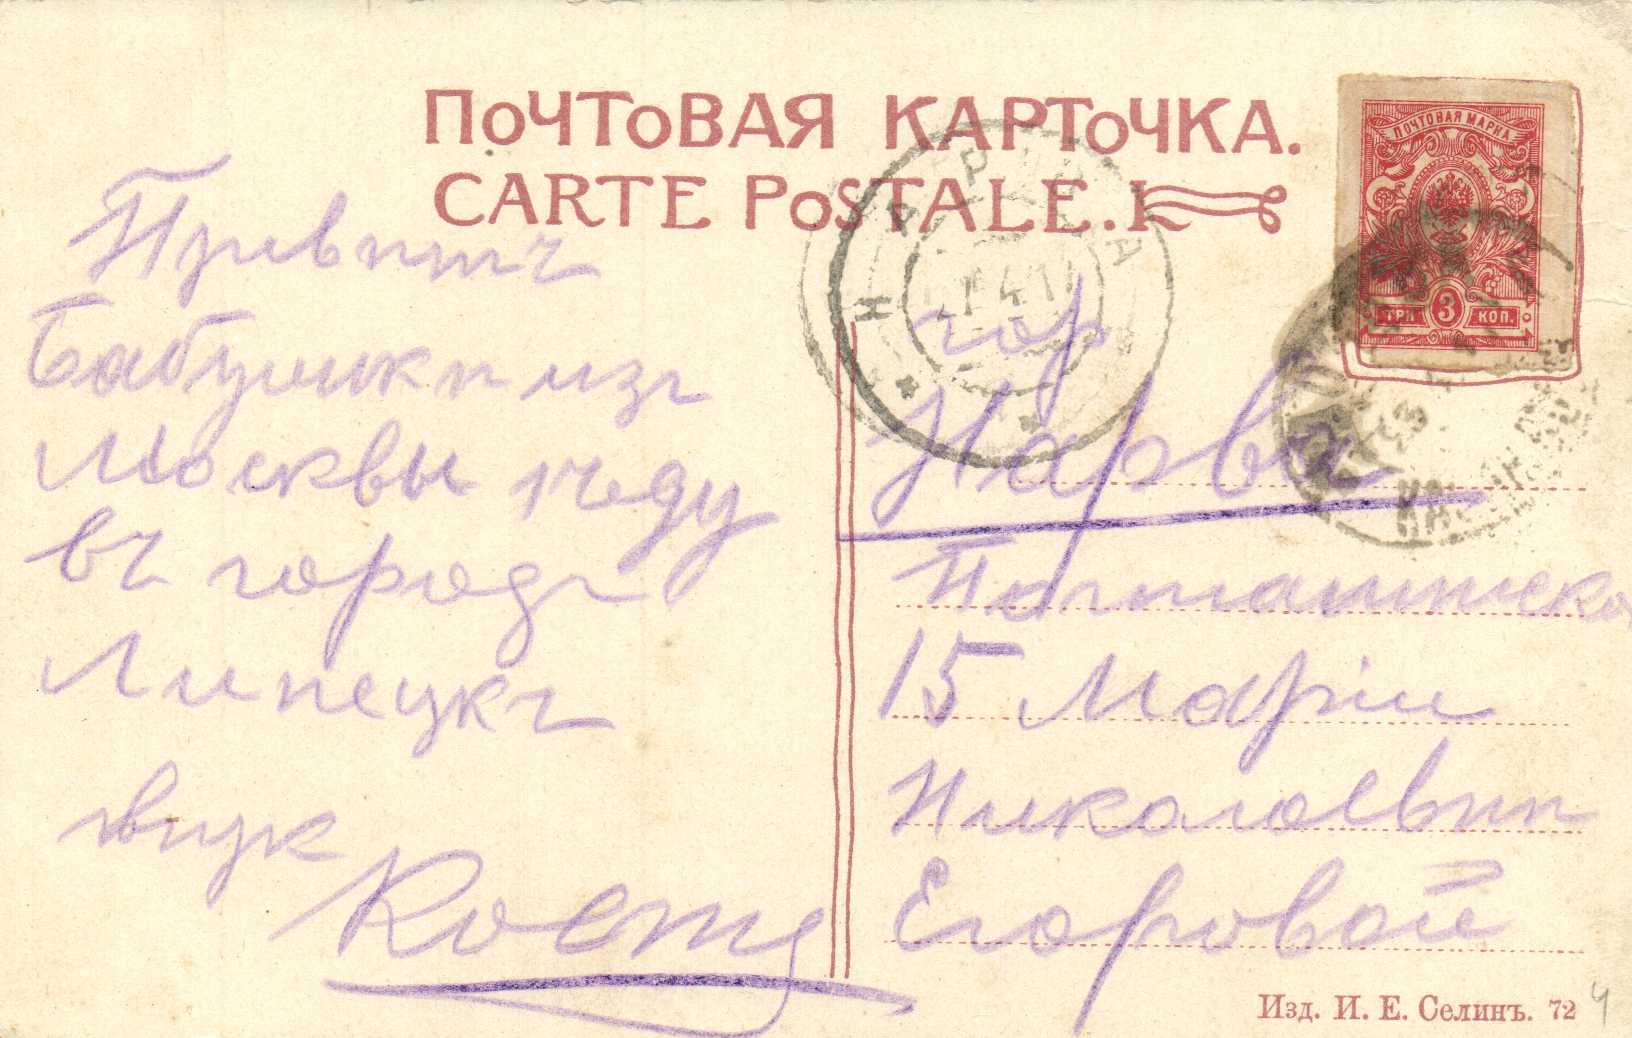 ПОЧТОВАЯ КАРТОЧКА.
CARTE POSTALE.
ПОЧТОВАЯ МАРКА
ТРИ 3 КОП.
НАРВА
Привѣтъ
Бабушкѣ изъ
Москвы ѣду
въ городъ
Липецкъ
внук
Костя
гор
Нарва
15 Маріи
Николаевнѣ
Егоровой
Изд. И. Е. Селинъ. 72
4